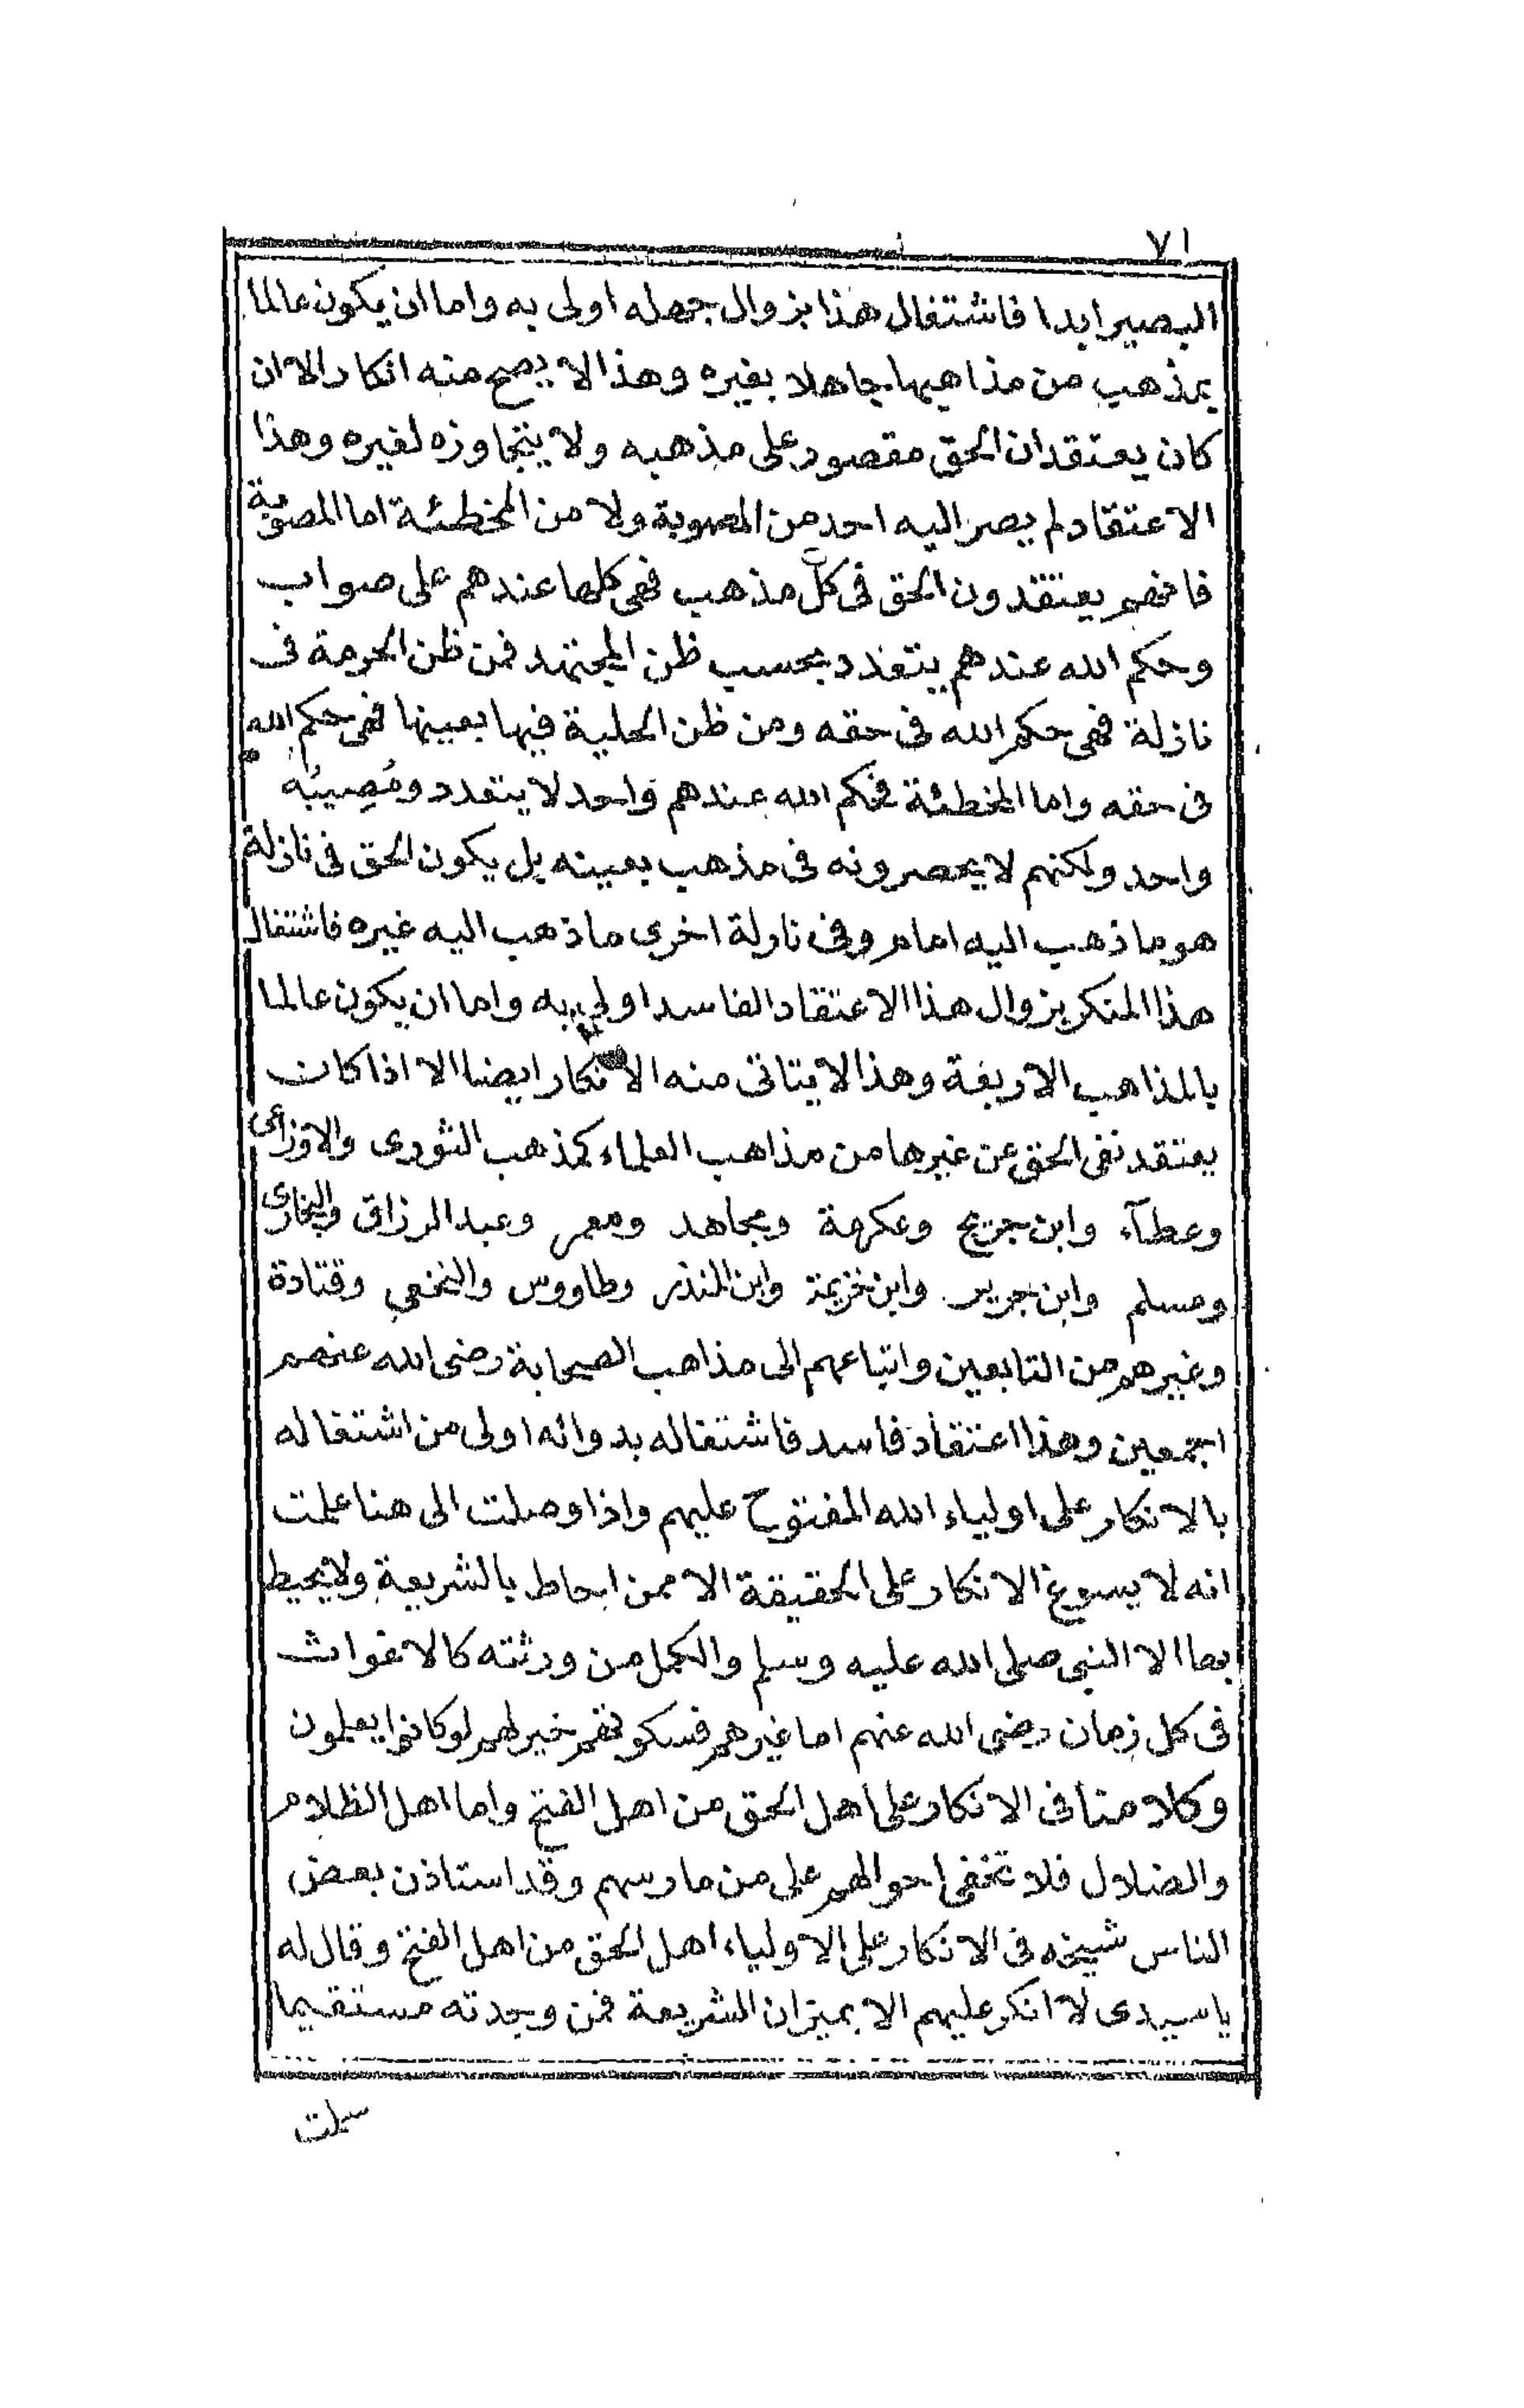 ٧١
البصير ابدا فاشتغال هذا بزوال جهله اولى به واما ان يكون عالما
بمذهب من مذاهبها جاهلا بغيره وهذا لا يصح منه انكار الا ان
كان يعتقد ان الحق مقصور على مذهبه ولا يتجاوزه لغيره وهذا
الاعتقاد لم يصر اليه احد من المصوبة ولا من المخطئة اما المصوبة
فانهم يعتقدون الحق فى كل مذهب فهى كلها عندهم على صواب
وحكم الله عندهم يتعدد بحسب ظن المجتهد فمن ظن الحرمة فى
نازلة فهى حكم الله فى حقه ومن ظن الحلية فيها بعينها فهى حكم الله
فى حقه واما المخطئة فحكم الله عندهم واحد لا يتعدد ومُصِيبُه
واحد ولكنهم لا يحصرونه فى مذهب بعينه بل يكون الحق فى نازلة
هو ما ذهب اليه امام وفى نازلة اخرى ما ذهب اليه غيره فاشتغال
هذا المنكر بزوال هذا الاعتقاد الفاسد اولى به واما ان يكون عالما
بالمذاهب الاربعة وهذا لا يتاتى منه الانكار ايضا الا اذا كان
يعتقد نفى الحق عن غيرها من مذاهب العلماء كمذهب الثورى والاوزاعى
وعطآء وابن جريج وعكرمة ومجاهد ومعمر وعبد الرزاق والبخارى
ومسلم وابن جرير وابن خزيمة وابن المنذر وطاووس والنخعي وقتادة
وغيرهم من التابعين واتباعهم الى مذاهب الصحابة رضى الله عنهم
اجمعين وهذا اعتقاد فاسد فاشتغاله بدوائه اولى من اشتغاله
بالانكار على اولياء الله المفتوح عليهم واذا وصلت الى هنا علمت
انه لا يسوغ الانكار على الحقيقة الا ممن احاط بالشريعة ولا يحيط
بها الا النبى صلى الله عليه وسلم والكمل من ورثته كالاغواث
فى كل زمان رضى الله عنهم اما غيرهم فسكوتهم خير لهم لو كانوا يعلمون
وكلامنا فى الانكار على اهل الحق من اهل الفتح واما اهل الظلام
والضلال فلا تخفى احوالهم على من مارسهم وقد استاذن بعض
الناس شيخه فى الانكار على الاولياء اهل الحق من اهل الفتح وقال له
يا سيدى لا انكر عليهم الا بميزان الشريعة فمن وجدته مستقيما
سلمت